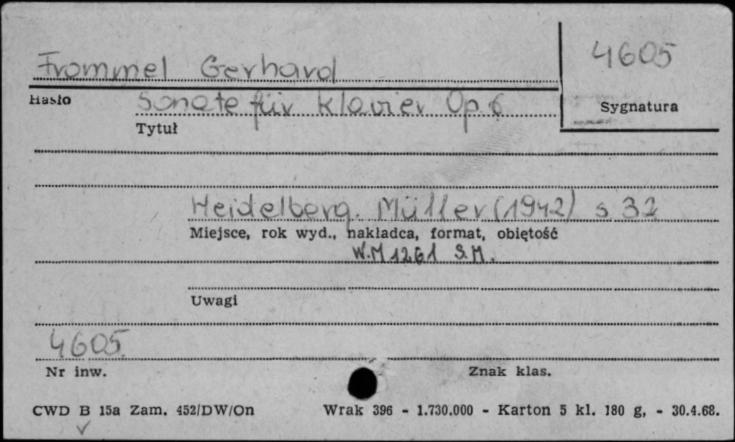 Frommel Gerhard
4605
Hasło
Sonate für Klavier Op. 6
Sygnatura
Tytuł
Heidelberg. Müller (1942) s 32
Miejsce, rok wyd., nakładca, format, objętość
W.M 1261 S.M.
Uwagi
4605
Nr inw.
Znak klas.
CWD B 15a Zam. 452/DW/On Wrak 396 - 1.730.000 - Karton 5 kl. 180 g, - 30.4.68.